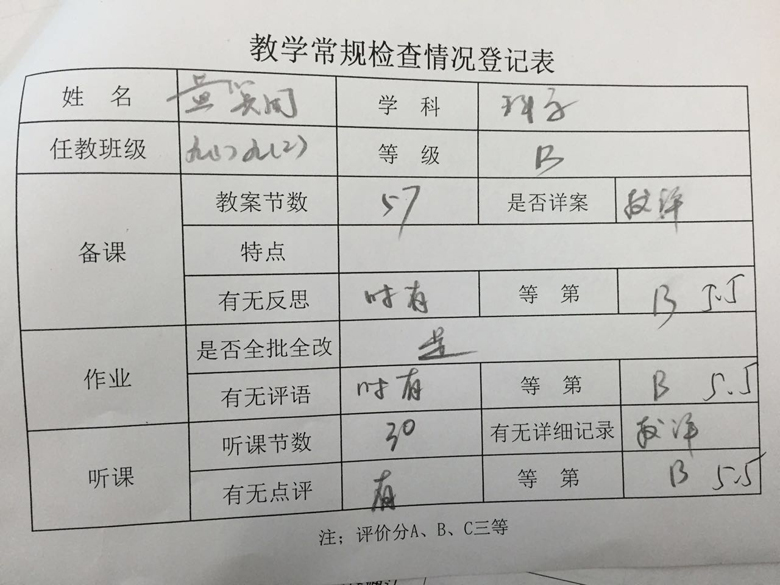 教学常规检查情况登记表
姓 名 学 科 科学
任教班级 九(1) 九(2) 等 级 B
备课 教案节数 57 是否详案 较详
特点
有无反思 时有 等 第 B 5.5
作业 是否全批全改 是
有无评语 时有 等 第 B 5.5
听课 听课节数 30 有无详细记录 较详
有无点评 有 等 第 B 5.5
注：评价分A、B、C三等